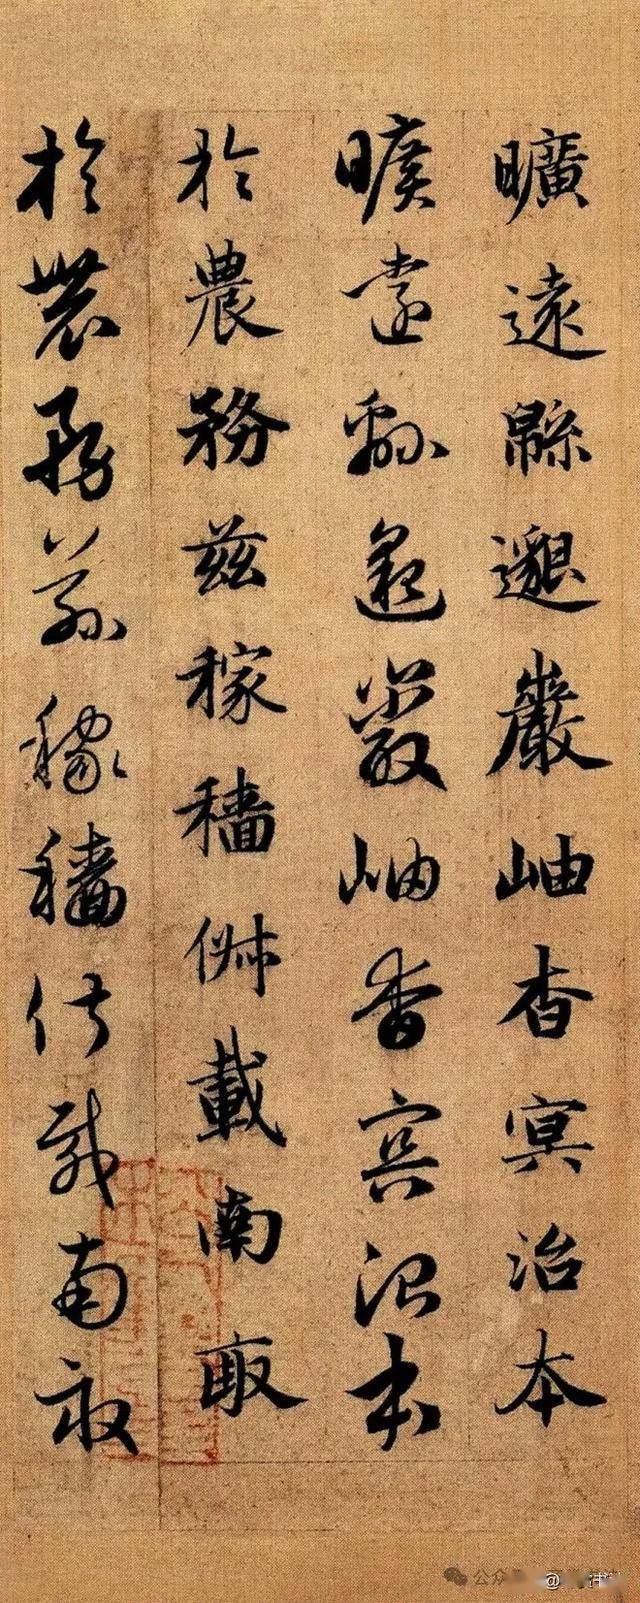 曠遠緜邈巖岫杳冥治本
曠遠緜邈巖岫杳冥治本
於農務茲稼穡俶載南畝
於農務茲稼穡俶載南畝
公众
@